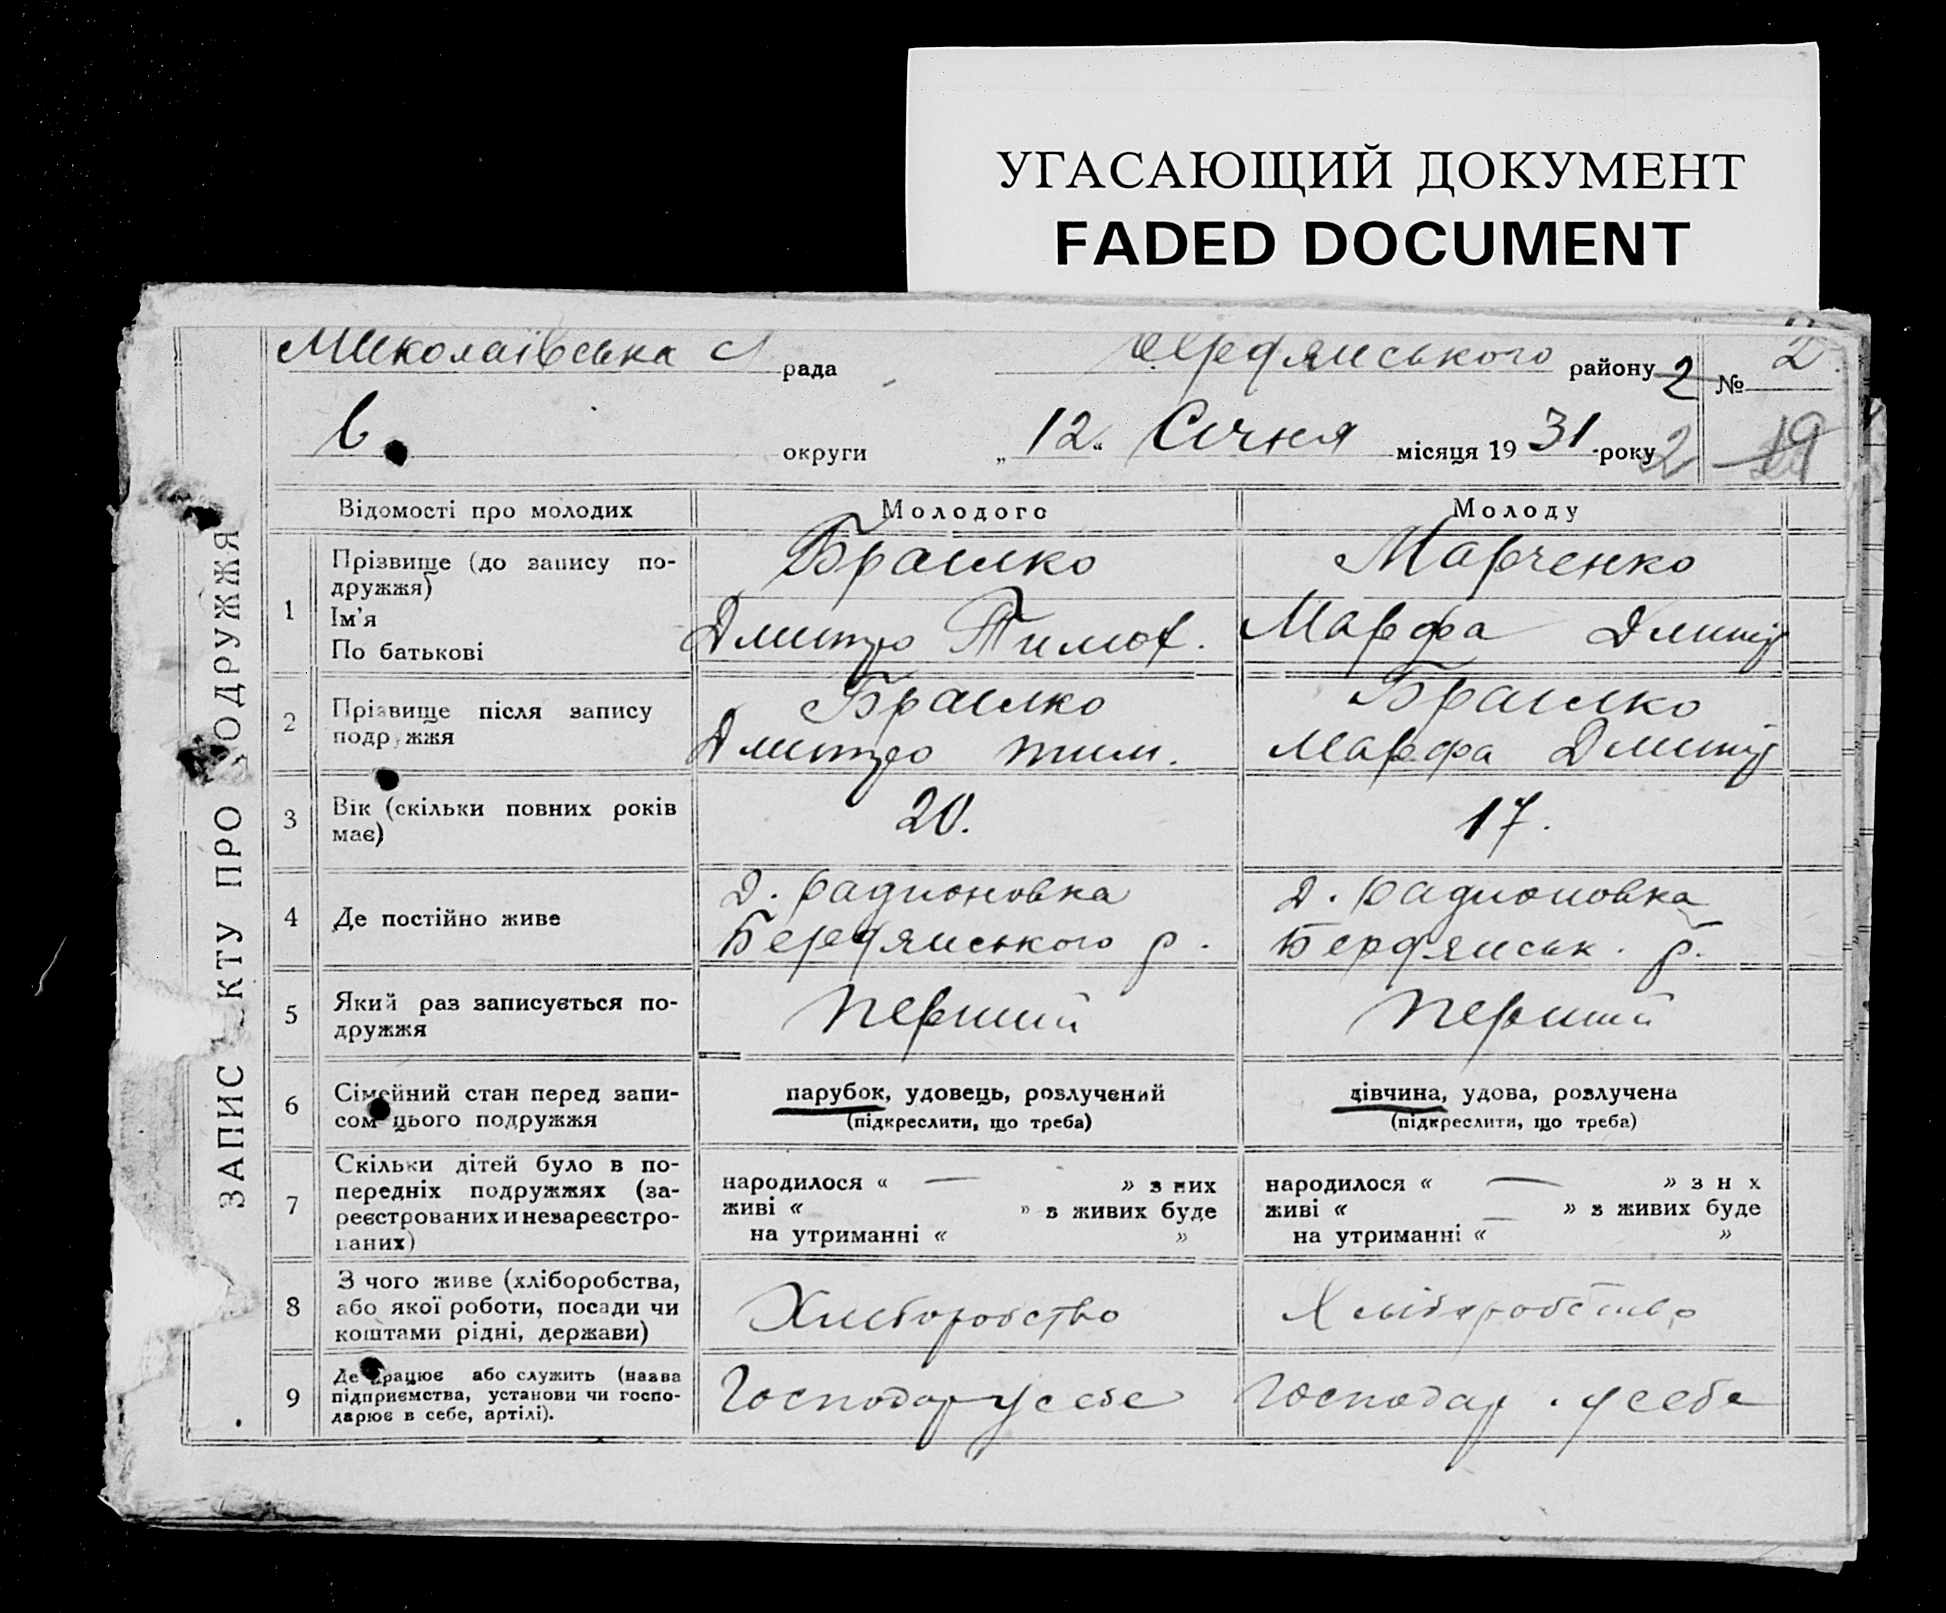 УГАСАЮЩИЙ ДОКУМЕНТ
FADED DOCUMENT
Миколаївська с/ рада Бердянського району 2 № 2
округи „12“ Січня місяця 1931 року 2 19
ЗАПИС АКТУ ПРО ПОДРУЖЖЯ
Відомості про молодих Молодого Молоду
1 Прізвище (до запису по-
дружжя)
Ім'я
По батькові
Браілко Марченко
Дмитро Тимоф. Марфа Дмитр
2 Прізвище після запису
подружжя
Браілко Браілко
Дмитро тим. Марфа Дмитр
3 Вік (скільки повних років
має)
20. 17.
4 Де постійно живе
д. Радионовка д. Радионовка
Бердянського р. Бердянськ. р.
5 Який раз записується по-
дружжя
перший перший
6 Сімейний стан перед запи-
сом цього подружжя
парубок, удовець, розлучений дівчина, удова, розлучена
(підкреслити, що треба) (підкреслити, що треба)
7 Скільки дітей було в по-
передніх подружжях (за-
реєстрованих и незареєстро-
ваних)
народилося « — » з них народилося « — » з н х
живі « » з живих буде живі « » з живих буде
на утриманні « » на утриманні « »
8 З чого живе (хліборобства,
або якої роботи, посади чи
коштами рідні, держави)
Хлеборобство Хліборобство
9 Де працює або служить (назва
підприємства, установи чи госпо-
дарює в себе, артілі).
Господар у себе Господар. у себе